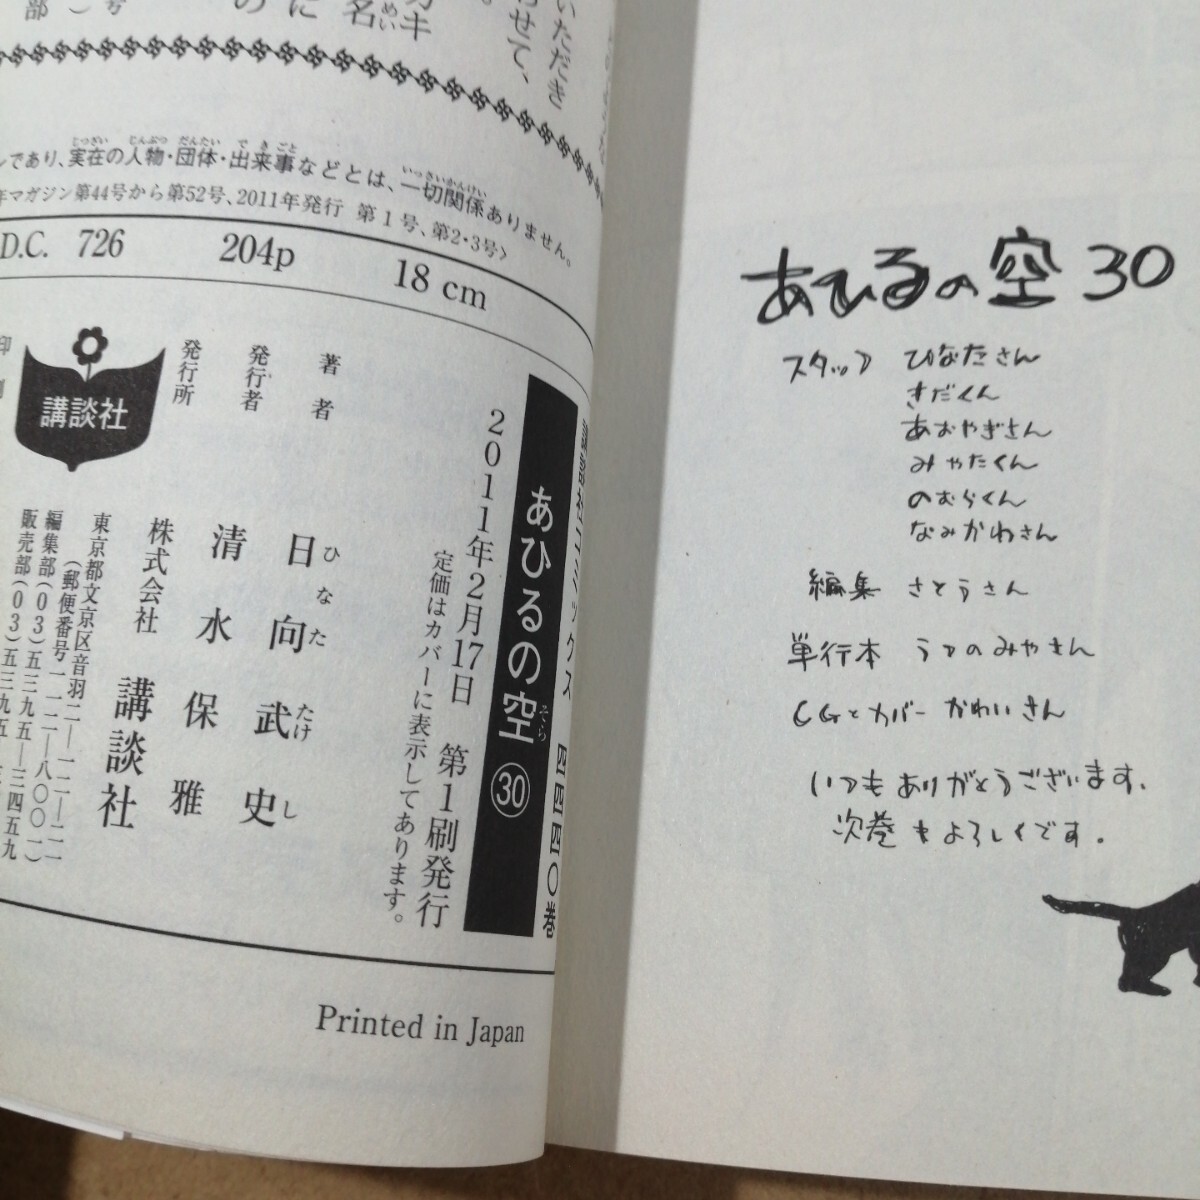 いただき
わせて、
カキ
名
めい
に
の
号
部
じっざい じんぶつ だんたい できごと いっさいかんけい
であり、実在の人物・団体・出来事などとは、一切関係ありません。
年マガジン第44号から第52号、2011年発行 第1号、第2・3号〉
D.C. 726 204p 18 cm
講談社コミックス 四四四〇巻
あひるの空 ㉚
そら
2011年2月17日 第1刷発行
定価はカバーに表示してあります。
著者 日向武史
ひなた たけし
発行者 清水保雅
発行所 株式会社 講談社
東京都文京区音羽二―一二―二一
(郵便番号一一二―八〇〇一)
編集部(03)五三九五―三四五九
販売部(03)五三九五
印
講談社
Printed in Japan
あひるの空 30
スタッフ ひなたさん
きだくん
あおやぎさん
みやたくん
のむらくん
なみかわさん
編集 さとうさん
単行本 うつのみやさん
CGとカバー かわいさん
いつもありがとうございます。
次巻もよろしくです。